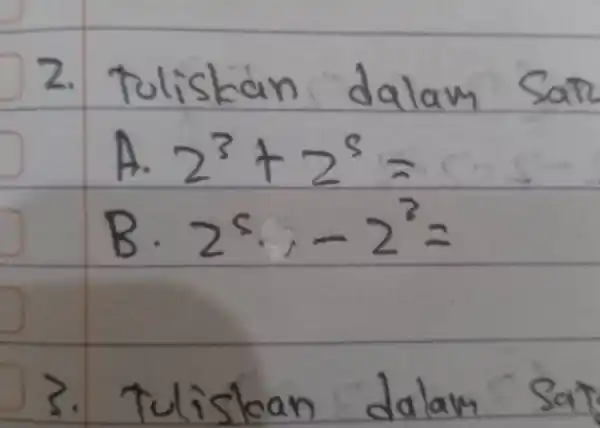 2. Tuliskan dalam Satu
A. 2³ + 2⁵ =
B. 2⁵ - 2³ =
3. Tuliskan dalam Satu